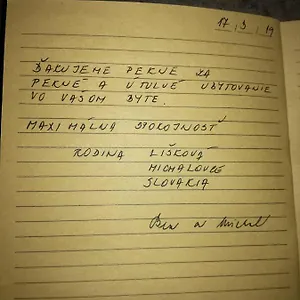 17, 9, 19
ĎAKUJEME PEKNE ZA
PEKNÉ A ÚTULNÉ UBYTOVANIE
VO VAŠOM BYTE.
MAXIMÁLNA SPOKOJNOSŤ
RODINA LIŠKOVÁ
MICHALOVCE
SLOVAKIA